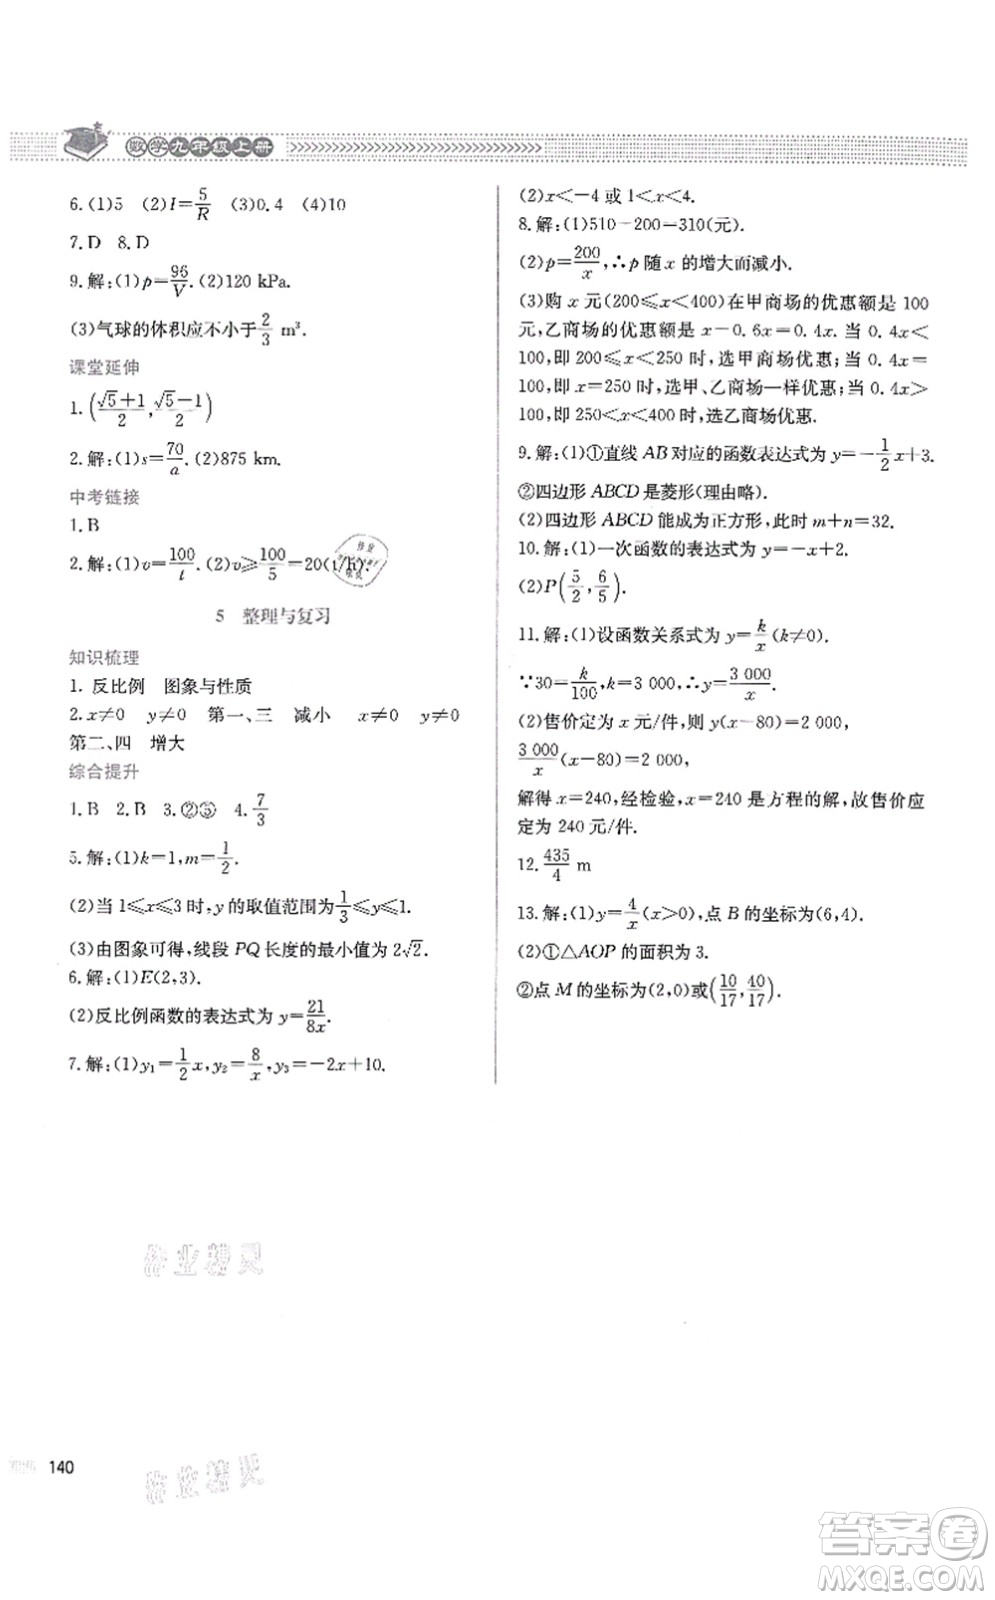 数学九年级上册
6.(1)5 (2)I=5/R (3)0.4 (4)10
7.D 8.D
9.解:(1)p=96/V.(2)120 kPa.
(3)气球的体积应不小于2/3 m³.
课堂延伸
1.((√5+1)/2,(√5-1)/2)
2.解:(1)s=70/a.(2)875 km.
中考链接
1.B
2.解:(1)v=100/t.(2)v≥100/5=20(t/h).
5 整理与复习
知识梳理
1.反比例 图象与性质
2.x≠0 y≠0 第一、三 减小 x≠0 y≠0
第二、四 增大
综合提升
1.B 2.B 3.②⑤ 4.7/3
5.解:(1)k=1,m=1/2.
(2)当1≤x≤3时,y的取值范围为1/3≤y≤1.
(3)由图象可得,线段PQ长度的最小值为2√2.
6.解:(1)E(2,3).
(2)反比例函数的表达式为y=21/8x.
7.解:(1)y₁=1/2x,y₂=8/x,y₃=-2x+10.
(2)x<-4或1<x<4.
8.解:(1)510-200=310(元).
(2)p=200/x,∴p随x的增大而减小.
(3)购x元(200≤x<400)在甲商场的优惠额是100
元,乙商场的优惠额是x-0.6x=0.4x.当0.4x<
100,即200≤x<250时,选甲商场优惠;当0.4x=
100,即x=250时,选甲、乙商场一样优惠;当0.4x>
100,即250<x<400时,选乙商场优惠.
9.解:(1)①直线AB对应的函数表达式为y=-1/2x+3.
②四边形ABCD是菱形(理由略).
(2)四边形ABCD能成为正方形,此时m+n=32.
10.解:(1)一次函数的表达式为y=-x+2.
(2)P(5/2,6/5).
11.解:(1)设函数关系式为y=k/x(k≠0).
∵30=k/100,k=3 000,∴y=3 000/x.
(2)售价定为x元/件,则y(x-80)=2 000,
3 000/x(x-80)=2 000,
解得x=240,经检验,x=240是方程的解,故售价应
定为240元/件.
12.435/4 m
13.解:(1)y=4/x(x>0),点B的坐标为(6,4).
(2)①△AOP的面积为3.
②点M的坐标为(2,0)或(10/17,40/17).
作业精灵
140
作业精灵
答案卷
MXQE.COM